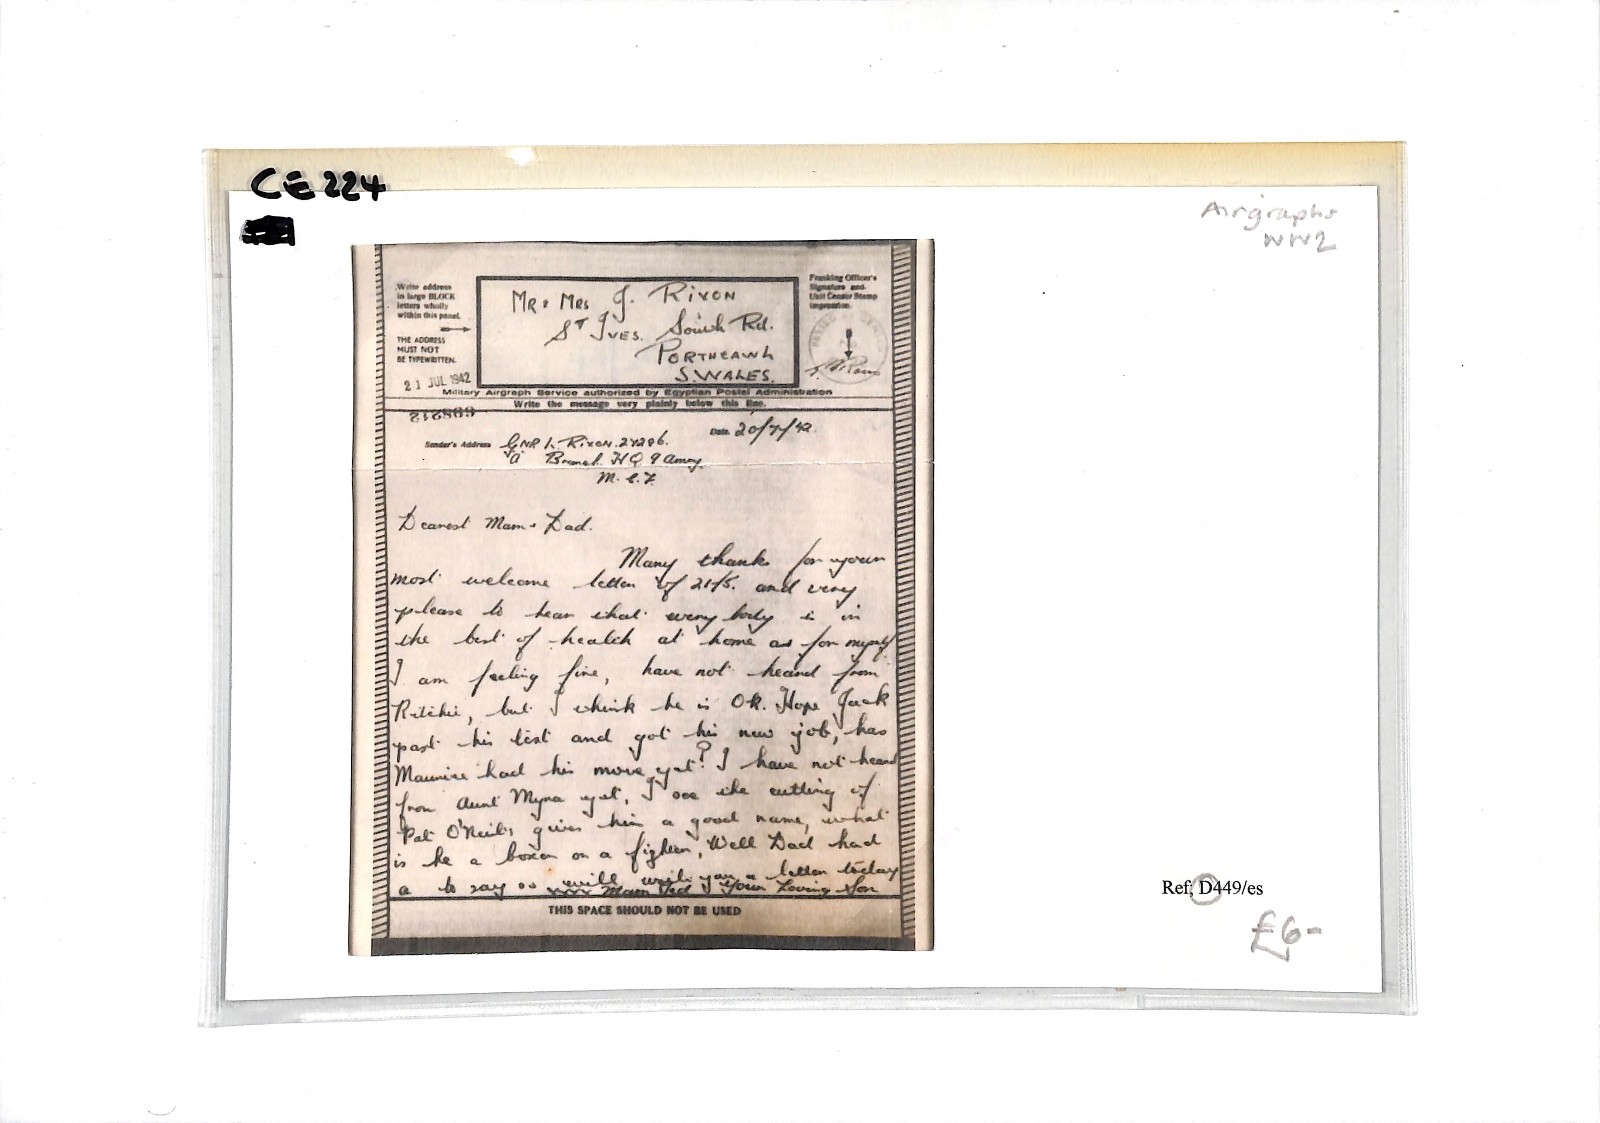 CE 224
Airgraphs
WW2
Write address
in large BLOCK
letters wholly
within this panel.
THE ADDRESS
MUST NOT
BE TYPEWRITTEN.
21 JUL 1942
MR & MRS J. RIXON
ST IVES. South Rd.
PORTHCAWL
S. WALES.
Franking Officer's
Signature and
Unit Censor Stamp
impression.
Military Airgraph Service authorized by Egyptian Postal Administration
Write the message very plainly below this line.
Sender's Address GNR L. RIXON
Date. 20/7/42
HQ 9 Army
M.E.F
Dearest Mam & Dad.
Many thanks for your
most welcome letter of 21/5. and very
please to hear that every body is in
the best of health at home as for myself
I am feeling fine, have not heard from
Ritchie, but I think he is OK. Hope Jack
past his test and got his new job, has
Maurice had his move yet? I have not heard
from Aunt Myra yet, I see the cutting of
Pat O'Neils gives him a good name, what
is he a boxer or a fighter, Well Dad had
a to say so will write you a letter today
Your Loving Son
THIS SPACE SHOULD NOT BE USED
Ref; D449/es
£6-